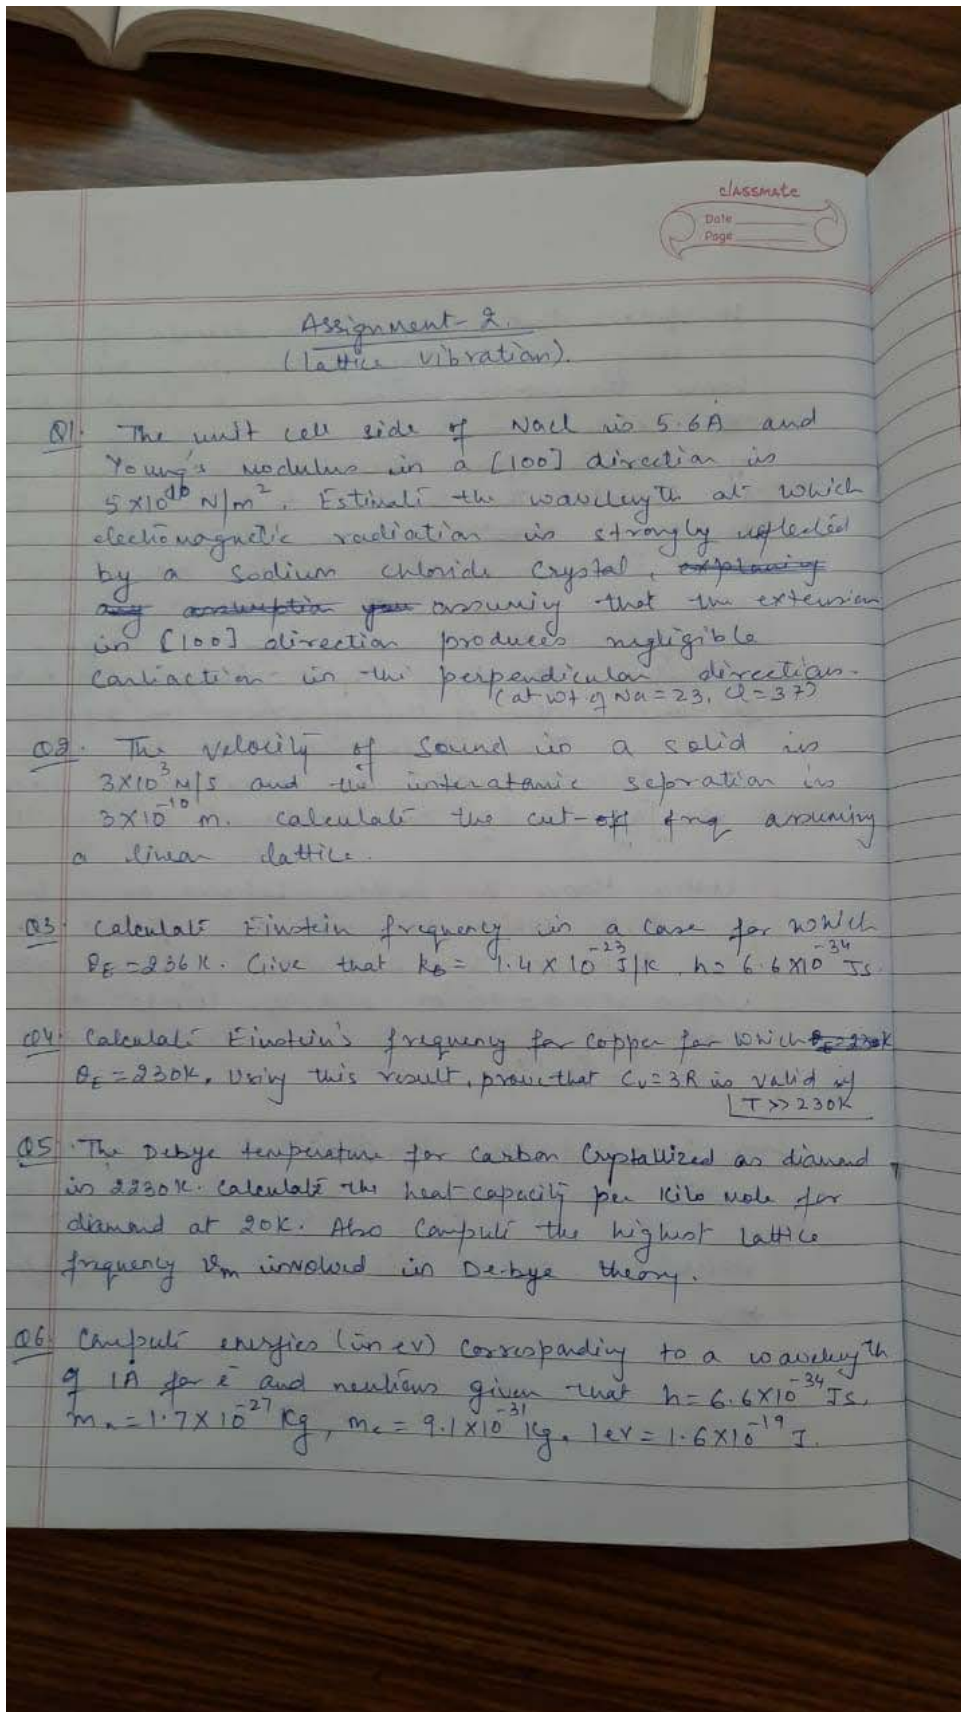 classmate
Date
Page
Assignment-2.
(lattice vibration).
Q1. The unit cell side of Nacl is 5.6Å and
Young's modulus in a [100] direction is
5×10¹⁰ N/m². Estimate the wavelength at which
electromagnetic radiation is strongly reflected
by a sodium chloride crystal, explaining
any assumption you assuming that the extension
in [100] direction produces negligible
contraction in the perpendicular direction.
(at wt of Na=23, Cl=37)
Q2. The velocity of sound in a solid is
3×10³ m/s and the interatomic sepration is
3×10⁻¹⁰ m. calculate the cut-off frq assuming
a linear lattice.
Q3. Calculate Einstein frequency in a case for which
θE=236K. Give that kB= 1.4×10⁻²³ J/K, h= 6.6×10⁻³⁴ Js.
Q4. Calculate Einstein's frequency for copper for which θE=230K
θE=230K. Using this result, prove that Cv=3R is valid if
T>>230K
Q5. The Debye temperature for Carbon Crystallized as diamond
is 2230K. Calculate the heat capacity per Kilo mole for
diamond at 20K. Also Compute the highest lattice
frequency νm involved in De-bye theory.
Q6. Compute energies (in ev) corresponding to a wavelength
of 1Å for ē and neutrons given that h=6.6×10⁻³⁴ Js,
mn=1.7×10⁻²⁷ Kg, me=9.1×10⁻³¹ Kg. 1ev=1.6×10⁻¹⁹ J.